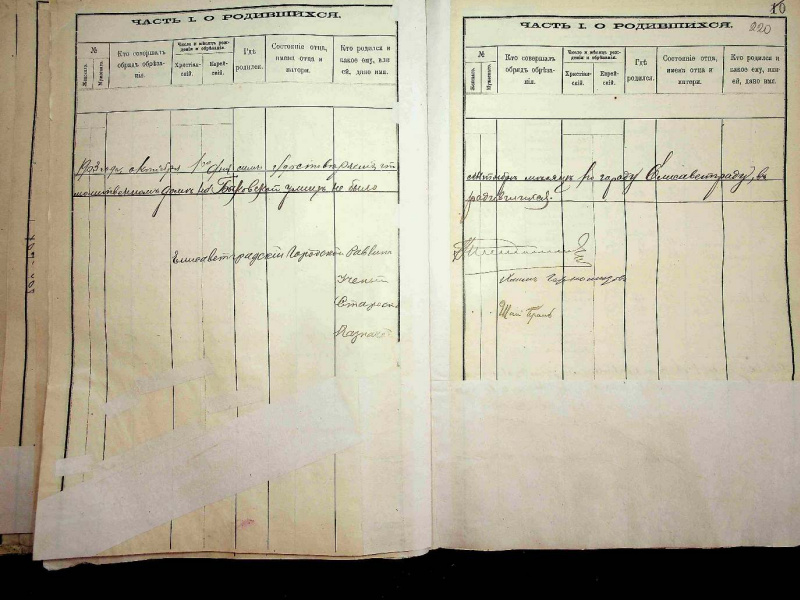 ЧАСТЬ I. О РОДИВШИХСЯ.
№
Женскаго.
Мужскаго.
Кто совершалъ обрядъ обрѣзанія.
Число и мѣсяцъ рожденія и обрѣзанія.
Христіанскій.
Еврейскій.
Гдѣ родился.
Состояніе отца, имена отца и матери.
Кто родился и какое ему, или ей, дано имя.
1903 года октября 1го дня симъ что въ
молитвенномъ домѣ по улицѣ не было
Елисаветградскій Городской Раввинъ
Ученый
Староста
Казначей
10
220
ЧАСТЬ I. О РОДИВШИХСЯ.
№
Женскаго.
Мужскаго.
Кто совершалъ обрядъ обрѣзанія.
Число и мѣсяцъ рожденія и обрѣзанія.
Христіанскій.
Еврейскій.
Гдѣ родился.
Состояніе отца, имена отца и матери.
Кто родился и какое ему, или ей, дано имя.
сентябрь мѣсяцъ по городу Елисаветграду, въ
родившихся.